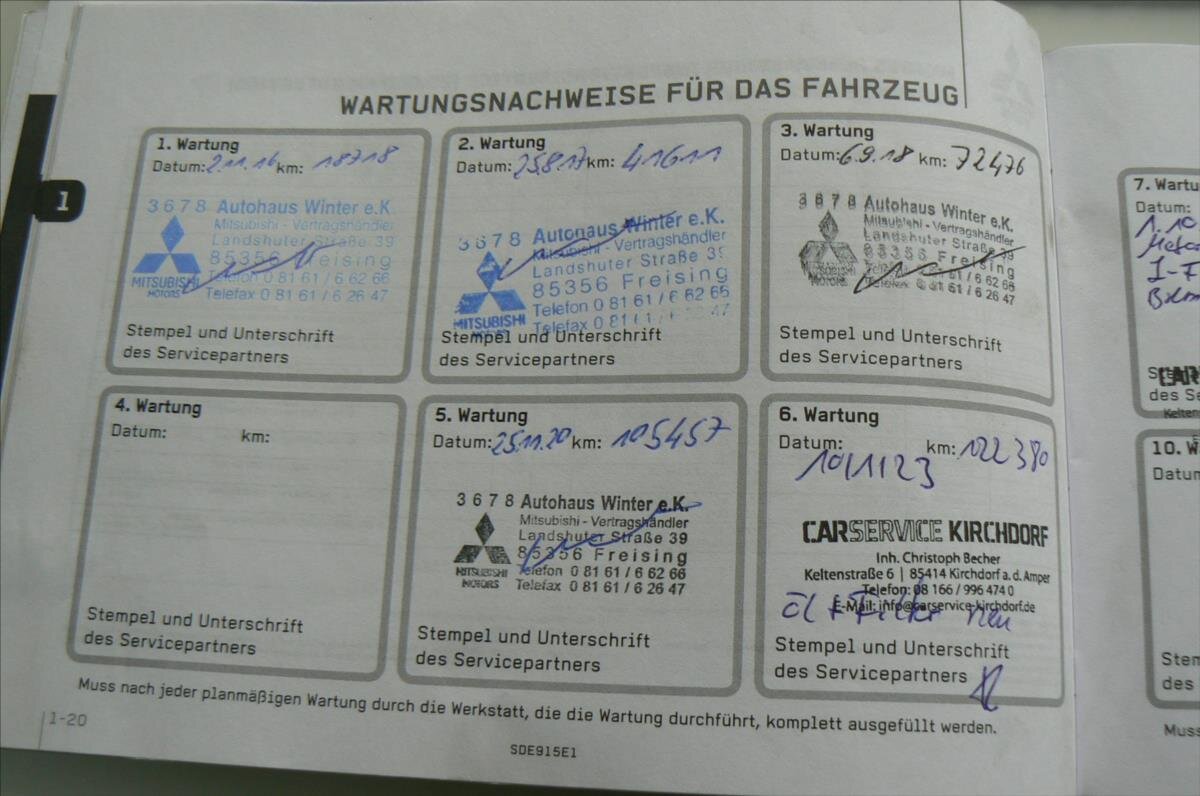 WARTUNGSNACHWEISE FÜR DAS FAHRZEUG
1
1. Wartung
Datum: 2.11.16 km: 18718
3678 Autohaus Winter e.K.
Mitsubishi - Vertragshändler
Landshuter Straße 39
85356 Freising
Telefon 0 81 61 / 6 62 66
Telefax 0 81 61 / 6 26 47
MITSUBISHI
MOTORS
Stempel und Unterschrift
des Servicepartners
2. Wartung
Datum: 25.8.17 km: 41611
3678 Autohaus Winter e.K.
Mitsubishi - Vertragshändler
Landshuter Straße 39
85356 Freising
Telefon 0 81 61 / 6 62 66
Telefax 0 81 61 / 6 26 47
MITSUBISHI
MOTORS
Stempel und Unterschrift
des Servicepartners
3. Wartung
Datum: 6.9.18 km: 72476
3678 Autohaus Winter e.K.
Mitsubishi - Vertragshändler
Landshuter Straße 39
85356 Freising
Telefon 0 81 61 / 6 62 66
Telefax 0 81 61 / 6 26 47
MITSUBISHI
MOTORS
Stempel und Unterschrift
des Servicepartners
4. Wartung
Datum: km:
Stempel und Unterschrift
des Servicepartners
5. Wartung
Datum: 25.11.20 km: 105457
3678 Autohaus Winter e.K.
Mitsubishi - Vertragshändler
Landshuter Straße 39
85356 Freising
Telefon 0 81 61 / 6 62 66
Telefax 0 81 61 / 6 26 47
MITSUBISHI
MOTORS
Stempel und Unterschrift
des Servicepartners
6. Wartung
Datum: km: 122380
10/1123
CARSERVICE KIRCHDORF
Inh. Christoph Becher
Keltenstraße 6 | 85414 Kirchdorf a. d. Amper
Telefon: 08 166 / 996 474 0
E-Mail: info@carservice-kirchdorf.de
Öl + Filter neu
Stempel und Unterschrift
des Servicepartners
Muss nach jeder planmäßigen Wartung durch die Werkstatt, die die Wartung durchführt, komplett ausgefüllt werden.
1-20
SDE915E1
7. Wartu
Datum:
1.10
CAR
des Se
Kelten
10. W
Datum
Stem
des
Muss